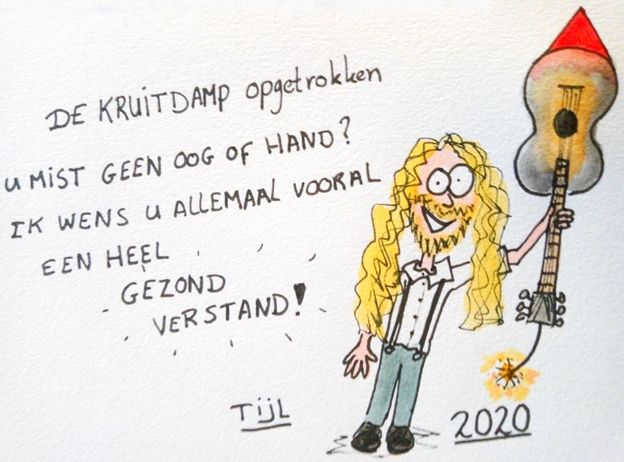 DE KRUITDAMP opgetrokken
U MIST GEEN OOG OF HAND?
IK WENS U ALLEMAAL VOORAL
EEN HEEL
GEZOND
VERSTAND!
TIJL
2020